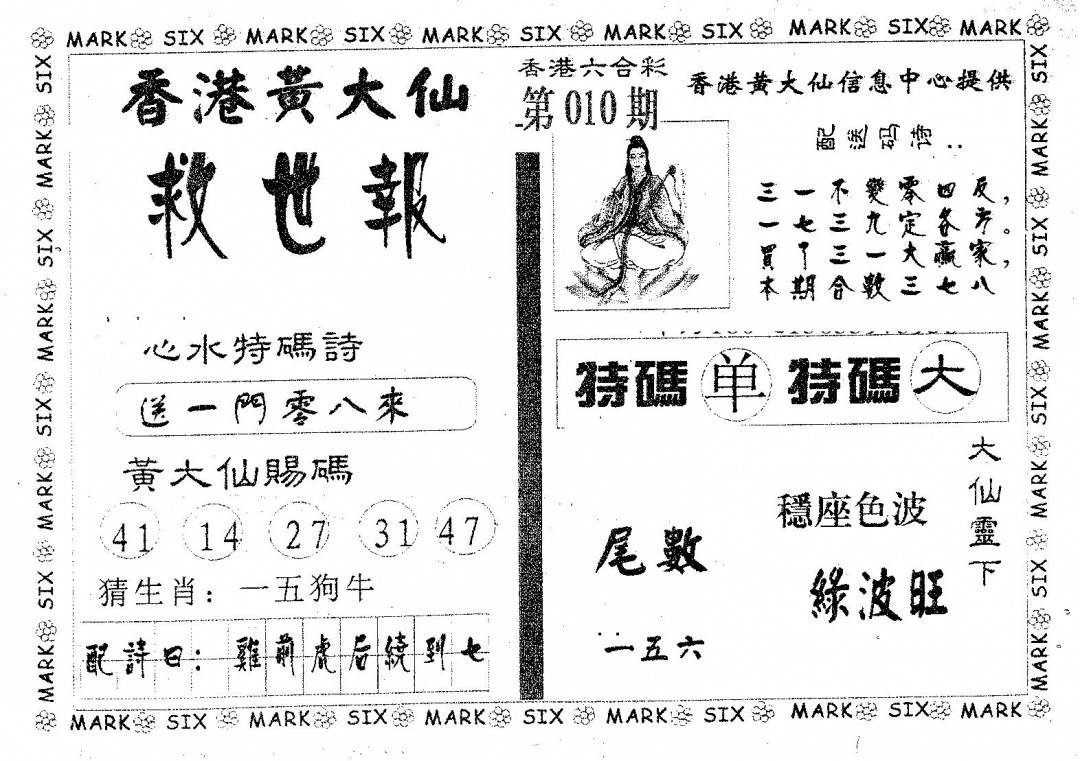 MARK SIX MARK SIX MARK SIX MARK SIX MARK SIX MARK
香港黃大仙
救世報
心水特碼詩
送一門零八來
黃大仙賜碼
41 14 27 31 47
猜生肖：一五狗牛
配詩曰：雞前虎后繞到七
香港六合彩
第010期
香港黃大仙信息中心提供
配送码诗：
三一不變零四反，
一七三九定各方。
買了三一大贏家，
本期合數三七八
特碼 单 特碼 大
大仙靈下
穩座色波
綠波旺
尾數
一五六
SIX MARK SIX MARK SIX MARK SIX MARK
SIX MARK SIX MARK SIX MARK SIX MARK
MARK SIX MARK SIX MARK SIX MARK SIX MARK SIX MARK